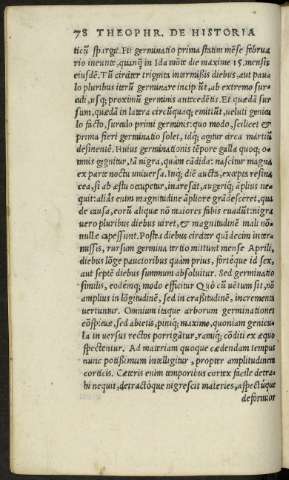 78 THEOPHR. DE HISTORIA
ticũ spargit. Fit germinatio prima statim mẽse februa
rio ineunte, quanq̃ in Ida mõte die maxime 15. mensis
eiusdẽ. Tũ circiter triginta intermissis diebus, aut paulo
lo pluribus iterũ germinare incipiũt, ab extremo sur
culi, usq; proximũ germinis antecedẽtis. Et quædã sur
sum, quædã in latera circũquaq; emittũt, ueluti genicu
lo facto, surculo primi germinis: quo modo, scilicet et
prima fieri germinatio solet, idq; agitur circa martiũ
desinentẽ. Huius germinationis tẽpore galla quoq; o
mnis gignitur, tã nigra, quàm cãdida: nascitur magna
ex parte noctu uniuersa. Inq; diẽ aucta, exceptis resina
cea, si ab æstu occupetur, inarescit, augeriq; ãplius ne
quit: aliàs enim magnitudine ãpliore grãdesceret, qua
de causa, eorũ aliquæ nõ maiores fabis euadũt: nigra
uero pluribus diebus uiret, et magnitudinẽ mali nõ
nullæ capessunt. Posta diebus circiter quĩdecim intermissis,
rursum germina tertio mittunt mense Aprili,
diebus lõge paucioribus quàm prius, fortéque id sex,
aut septẽ diebus summum absoluitur. Sed germinatio
similis, eodémq; modo efficitur. Quò cũ uẽtum sit, nõ
amplius in lõgitudinẽ, sed in crassitudinẽ, incrementa
uertuntur. Omnium itaque arborum germinationes
cõspicuæ, sed abietis, pinìq; maxime, quoniam genicula
in uersus rectos porrigãtur, ramiq; cõditi ex æquo
spectentur. Ad materiam quoque cædendam tempus
nunc potissimum intelligitur, propter amplitudinem
corticis. Cæteris enim temporibus cortex facile detrahi
nequit, detractóque nigrescit materies, aspectúque
deformior